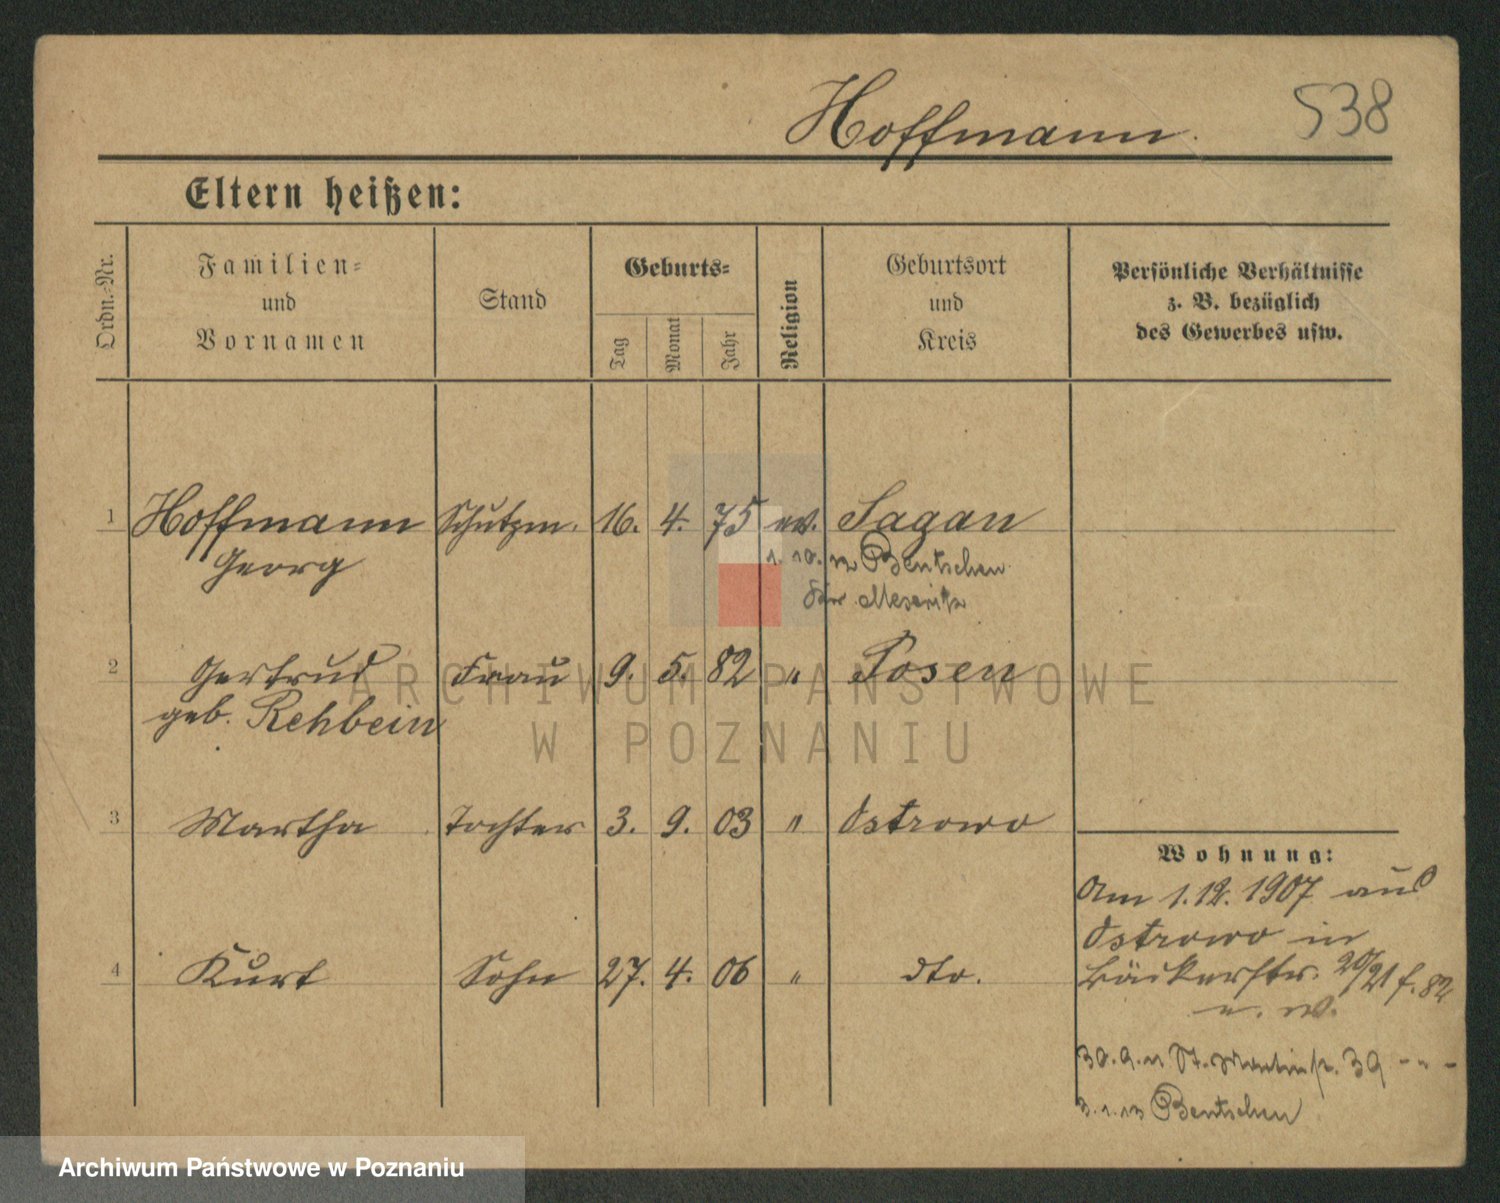 Hoffmann. 538
Eltern heißen:
Ordn.-Nr.
Familien-
und
Vornamen
Stand
Geburts-
Tag
Monat
Jahr
Religion
Geburtsort
und
Kreis
Persönliche Verhältnisse
z. B. bezüglich
des Gewerbes usw.
1 Hoffmann Schutzm. 16. 4. 75 ev. Sagan
Georg
1. 10. 12 Bentschen
Meseritz
2 Gertrud Frau 9. 5. 82 " Posen
geb. Rehbein
3 Martha Tochter 3. 9. 03 " Ostrowo
4 Kurt Sohn 27. 4. 06 " dto.
Wohnung:
Am 1.12.1907 aus
Ostrowo in
Bäckerstr. 20/21 f. 82
30.9.11 St. Martinstr. 39 - " -
3.1.13 Bentschen
ARCHIWUM PAŃSTWOWE
W POZNANIU
Archiwum Państwowe w Poznaniu